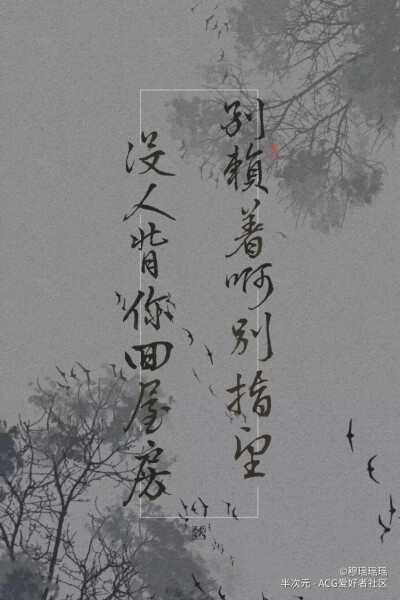 别赖着啊别指望
没人背你回屋房
©穆瑶瑶瑶
半次元 - ACG爱好者社区